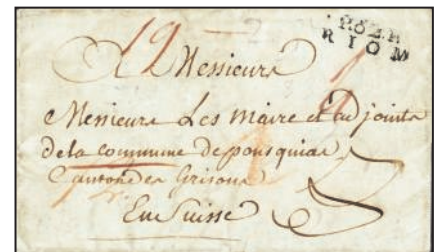 P.82.P.
RIOM
A Messieurs
Messieurs Les Maire et adjoints
de la commune de pousquiae
Canton des Grisons
En Suisse